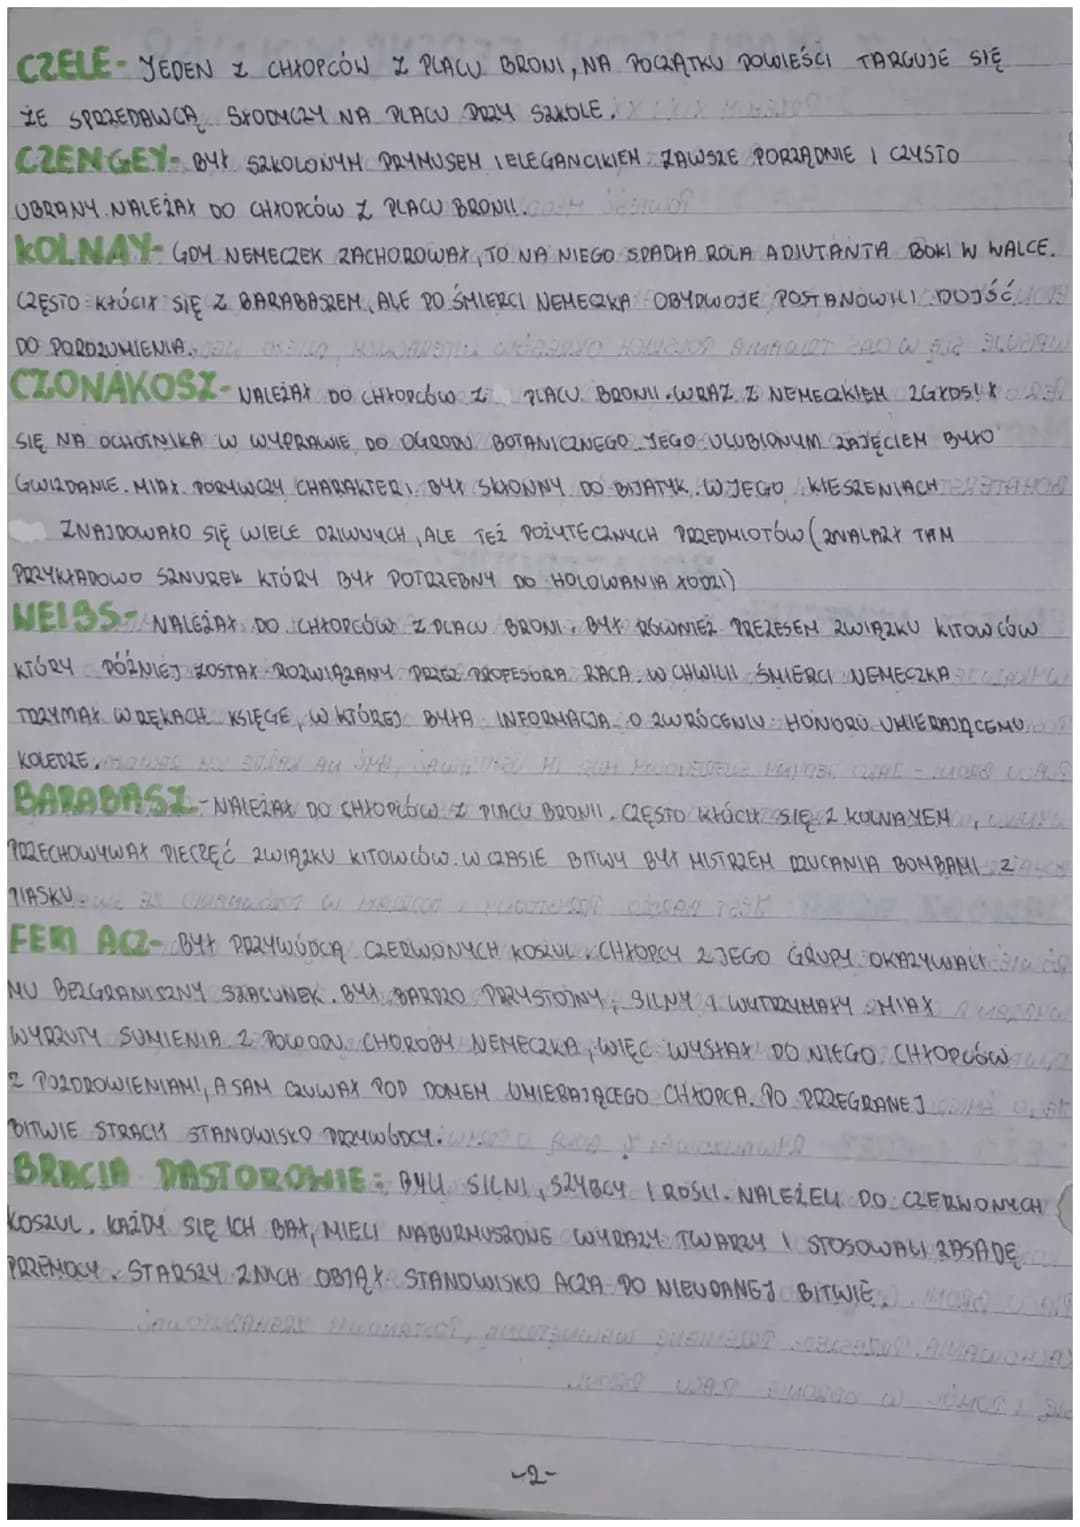 CZELE - JEDEN Z CHŁOPCÓW Z PLACU BRONI, NA POCZĄTKU POWIEŚCI TARGUJE SIĘ
ZE SPRZEDAWCĄ SŁODYCZY NA PLACU PRZY SZKOLE.
CZENGEY - BYŁ SZKOLONYM PRYMUSEM I ELEGANCIKIEM. ZAWSZE PORZĄDNIE I CZYSTO
UBRANY. NALEŻAŁ DO CHŁOPCÓW Z PLACU BRONII.
KOLNAY - GDY NEMECZEK ZACHOROWAŁ, TO NA NIEGO SPADŁA ROLA ADIUTANTA BOKI W WALCE.
CZĘSTO KŁÓCIŁ SIĘ Z BARABASZEM, ALE PO ŚMIERCI NEMECZKA OBYDWOJE POSTANOWILI DOJŚĆ
DO POROZUMIENIA.
CZONAKOSZ - NALEŻAŁ DO CHŁOPCÓW Z PLACU BRONII. WRAZ Z NEMECZKIEM ZGŁOSIŁ
SIĘ NA OCHOTNIKA W WYPRAWIE DO OGRODU BOTANICZNEGO. JEGO ULUBIONYM ZAJĘCIEM BYŁO
GWIZDANIE. MIAŁ PORYWCZY CHARAKTER I BYŁ SKŁONNY DO BIJATYK. W JEGO KIESZENIACH
ZNAJDOWAŁO SIĘ WIELE DZIWNYCH, ALE TEŻ POŻYTECZNYCH PRZEDMIOTÓW (ZNALAZŁ TAM
PRZYKŁADOWO SZNUREK KTÓRY BYŁ POTRZEBNY DO HOLOWANIA ŁODZI)
WEISS - NALEŻAŁ DO CHŁOPCÓW Z PLACU BRONI. BYŁ RÓWNIEŻ PREZESEM ZWIĄZKU KITOWCÓW
KTÓRY PÓŹNIEJ ZOSTAŁ ROZWIĄZANY PRZEZ PROFESORA RACA. W CHWILII ŚMIERCI NEMECZKA
TRZYMAŁ W RĘKACH KSIĘGE, W KTÓREJ BYŁA INFORMACJA O ZWRÓCENIU HONORU UMIERAJĄCEMU
KOLEDZE.
BARABASZ - NALEŻAŁ DO CHŁOPCÓW Z PLACU BRONII. CZĘSTO KŁÓCIŁ SIĘ Z KOLNAYEM,
PRZECHOWYWAŁ PIECZĘĆ ZWIĄZKU KITOWCÓW. W CZASIE BITWY BYŁ MISTRZEM RZUCANIA BOMBAMI Z
PIASKU.
FERI ACZ - BYŁ PRZYWÓDCĄ CZERWONYCH KOSZUL. CHŁOPCY Z JEGO GRUPY OKAZYWALI
MU BEZGRANISZNY SZACUNEK. BYŁ BARDZO PRZYSTOJNY, SILNY I WYTRZYMAŁY. MIAŁ
WYRZUTY SUMIENIA Z POWODU CHOROBY NEMECZKA, WIĘC WYSŁAŁ DO NIEGO CHŁOPCÓW
Z POZDROWIENIAMI, A SAM CZUWAŁ POD DOMEM UMIERAJĄCEGO CHŁOPCA. PO PRZEGRANEJ
BITWIE STRACIŁ STANOWISKO PRZYWÓDCY.
BRACIA PASTOROWIE: BYLI SILNI, SZYBCY I ROŚLI. NALEŻELI DO CZERWONYCH
KOSZUL. KAŻDY SIĘ ICH BAŁ, MIELI NABURMUSZONE WYRAZY TWARZY I STOSOWALI ZASADĘ
PRZEMOCY. STARSZY Z NICH OBJĄŁ STANOWISKO ACZA PO NIEUDANEJ BITWIE.
-2-